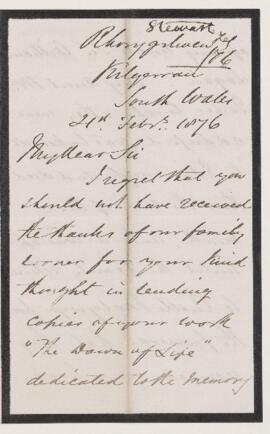 Stewart
Rhosygilwen
Kilgerran
South Wales
21st Feby. 1876
My Dear Sir
I regret that you
should not have received
the thanks of our family
sooner for your kind
thought in sending
copies of your work
"The Dawn of Life"
dedicated to the memory